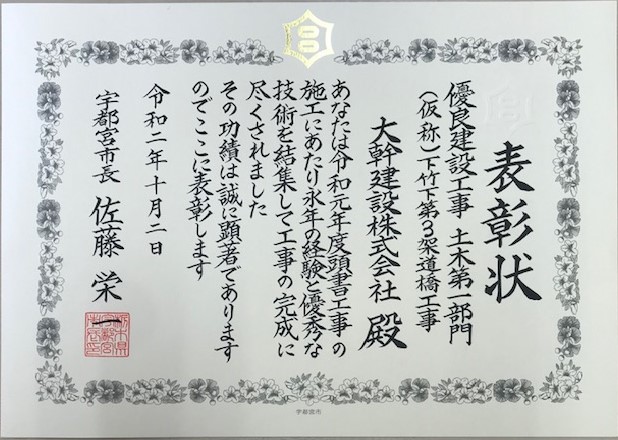 表彰状
優良建設工事 土木第一部門
(仮称)下竹下第3架道橋工事
大幹建設株式会社 殿
あなたは令和元年度頭書工事の
施工にあたり永年の経験と優秀な
技術を結集して工事の完成に
尽くされました
その功績は誠に顕著であります
のでここに表彰します
令和二年十月二日
宇都宮市長 佐藤栄一
宇都宮市